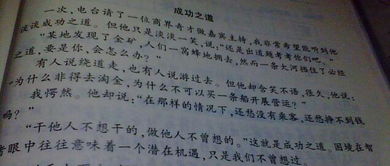 成功之道
一次，电台请了一位商界奇才做嘉宾主持，我非常希望能听到他
谈谈成功之道。但他只是淡淡一笑，说：“还是出道题考考你们吧。”
“某地发现了金矿，人们一窝蜂地拥去，然而一条大河挡住了必经
之道，要是你，会怎么办？”
有人说绕道走，也有人说游过去。但他却含笑不语，很久，他说：
“为什么非得去淘金，为什么不可以买一条船开展营运？”
我愕然。他却说：“在那样的情况下，还愁没有乘客，还愁挣不到钱
吗？”
“干他人不想干的，做他人不曾想的。”这就是成功之道。困境在智
者眼中往往意味着一个潜在机遇，只是我们不曾想过。